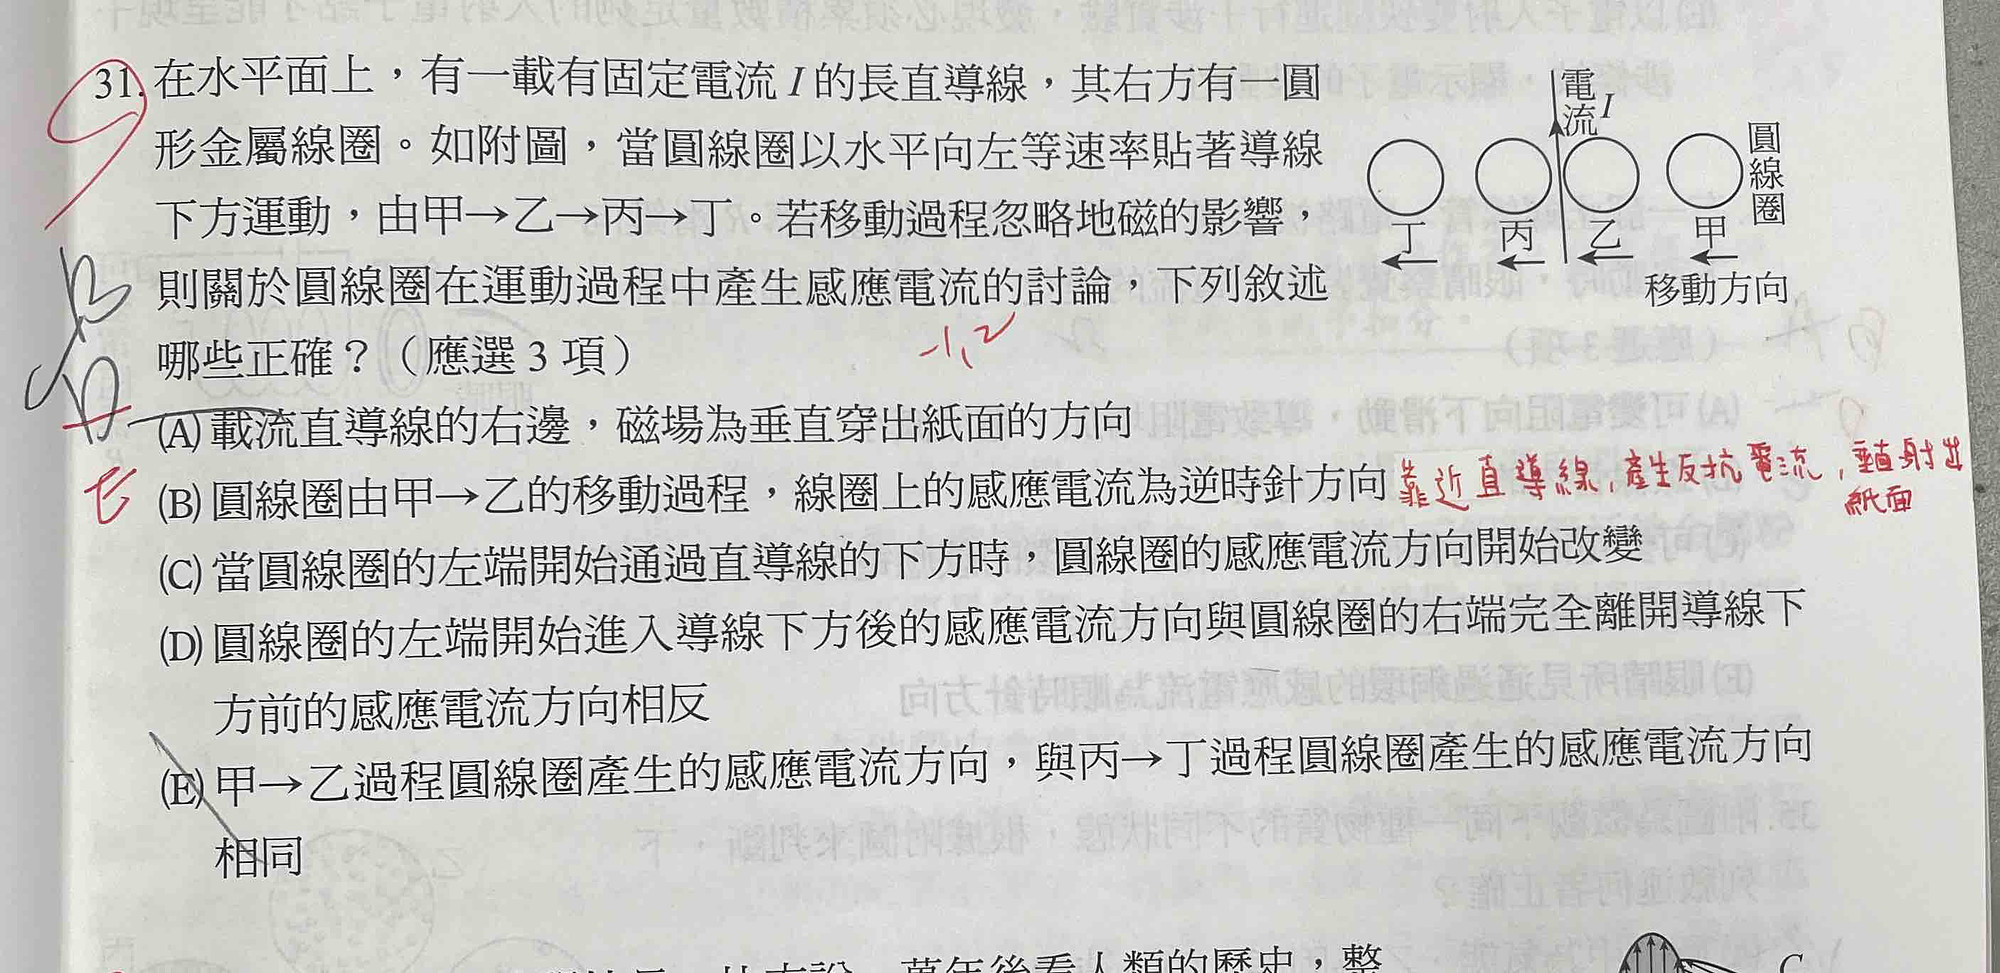 31. 在水平面上，有一載有固定電流 I 的長直導線，其右方有一圓
形金屬線圈。如附圖，當圓線圈以水平向左等速率貼著導線
下方運動，由甲→乙→丙→丁。若移動過程忽略地磁的影響，
則關於圓線圈在運動過程中產生感應電流的討論，下列敘述
哪些正確？（應選 3 項）
電流 I
圓線圈
丁 丙 乙 甲
移動方向
-1,2
B
C
D
E
(A) 載流直導線的右邊，磁場為垂直穿出紙面的方向
(B) 圓線圈由甲→乙的移動過程，線圈上的感應電流為逆時針方向 靠近直導線，產生反抗電流，垂直射出
紙面
(C) 當圓線圈的左端開始通過直導線的下方時，圓線圈的感應電流方向開始改變
(D) 圓線圈的左端開始進入導線下方後的感應電流方向與圓線圈的右端完全離開導線下
方前的感應電流方向相反
(E) 甲→乙過程圓線圈產生的感應電流方向，與丙→丁過程圓線圈產生的感應電流方向
相同
萬年後看人類的歷史，整
C